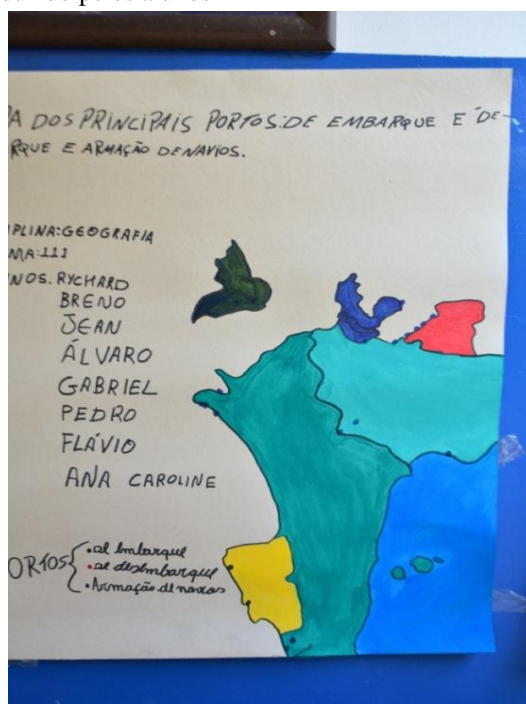 A DOS PRINCIPAIS PORTOS: DE EMBARQUE E DE-
RQUE E ARMAÇÃO DE NAVIOS.
PLINA: GEOGRAFIA
MA: 111
NOS. RYCHARD
BRENO
JEAN
ÁLVARO
GABRIEL
PEDRO
FLÁVIO
ANA CAROLINE
ORTOS
• de embarque
• de desembarque
• Armação de navios